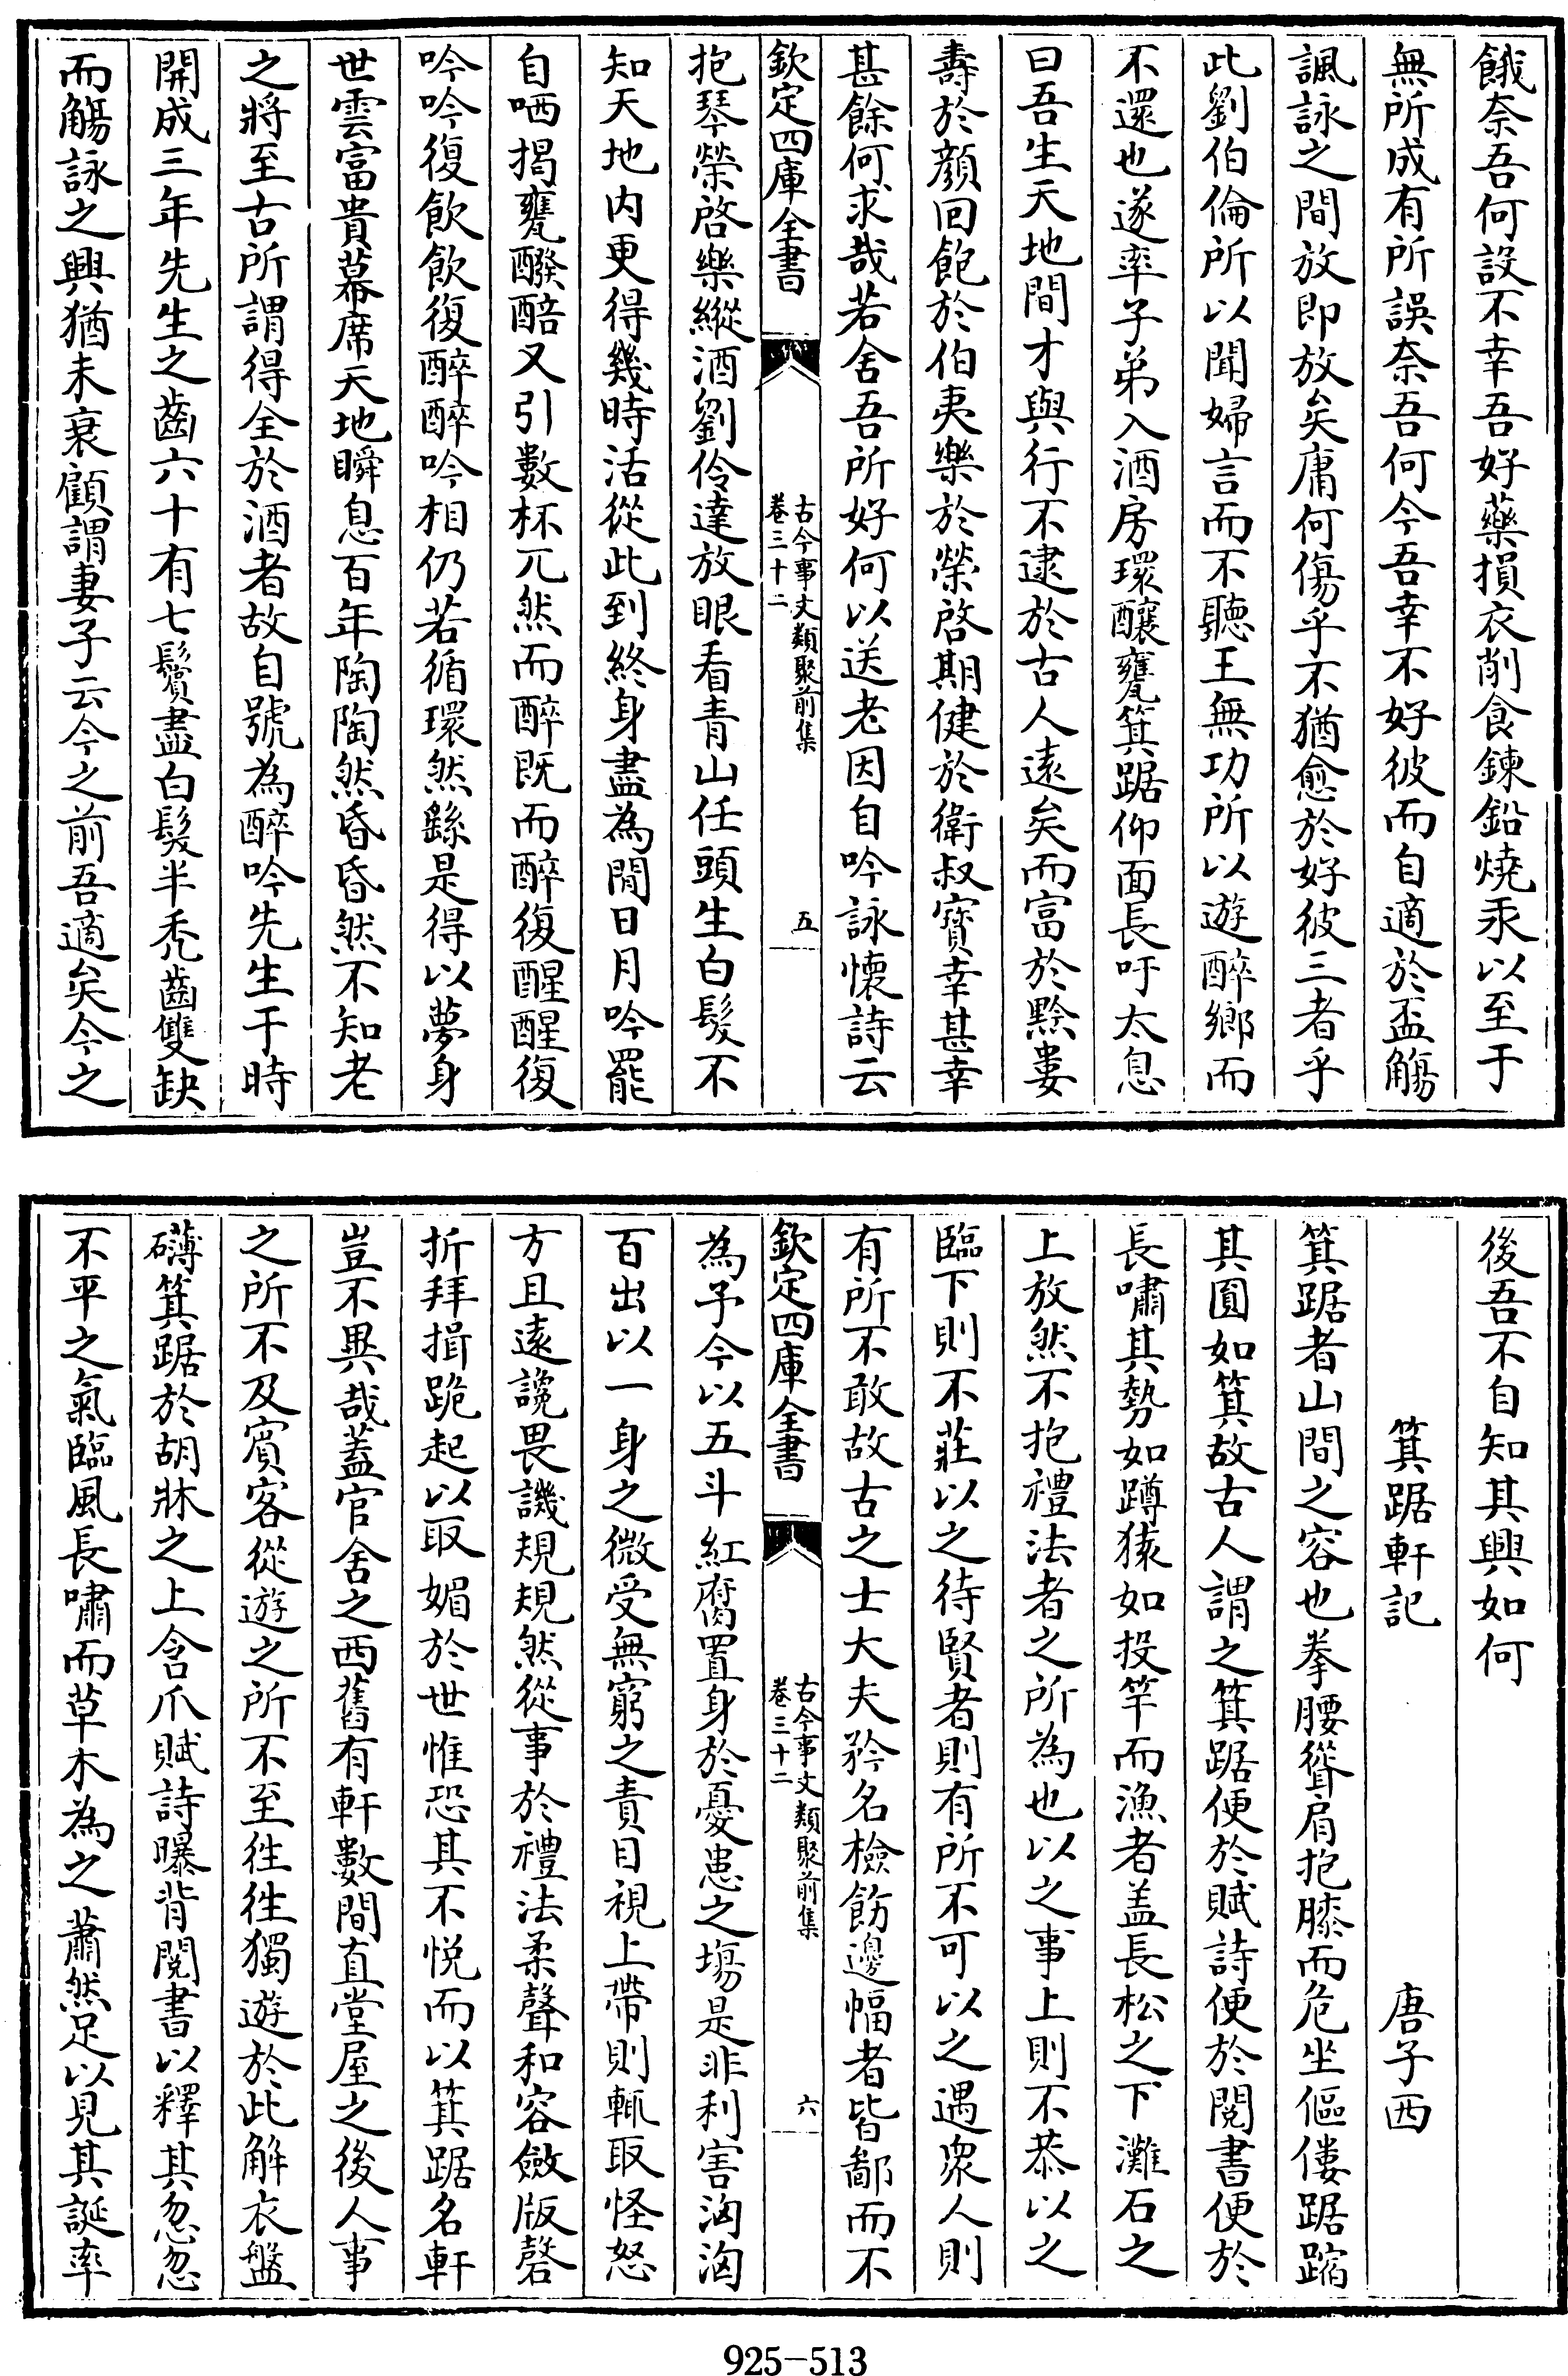 餓奈吾何設不幸吾好藥損衣削食鍊鉛燒汞以至于
無所成有所誤奈吾何今吾幸不好彼而自適於盃觴
諷詠之間放即放矣庸何傷乎不猶愈於好彼三者乎
此劉伯倫所以聞婦言而不聽王無功所以遊醉鄉而
不還也遂率子弟入酒房環釀甕箕踞仰面長吁太息
曰吾生天地間才與行不逮於古人遠矣而富於黔婁
壽於顏回飽於伯夷樂於榮啓期健於衛叔寶幸甚幸
甚餘何求哉若舍吾所好何以送老因自吟詠懷詩云
欽定四庫全書
古今事文類聚前集
卷三十二
五
抱琴榮啓樂縱酒劉伶達放眼看青山任頭生白髮不
知天地内更得幾時活從此到終身盡為閒日月吟罷
自哂揭甕醱醅又引數杯兀然而醉既而醉復醒醒復
吟吟復飲飲復醉醉吟相仍若循環然繇是得以夢身
世雲富貴幕席天地瞬息百年陶陶然昏昏然不知老
之將至古所謂得全於酒者故自號為醉吟先生于時
開成三年先生之齒六十有七鬚盡白髮半禿齒雙缺
而觴詠之興猶未衰顧謂妻子云今之前吾適矣今之
後吾不自知其興如何
箕踞軒記 唐子西
箕踞者山間之容也拳腰聳肩抱膝而危坐傴僂踞蹜
其圓如箕故古人謂之箕踞便於賦詩便於閱書便於
長嘯其勢如蹲猿如投竿而漁者盖長松之下灘石之
上放然不抱禮法者之所為也以之事上則不恭以之
臨下則不莊以之待賢者則有所不可以之遇衆人則
有所不敢故古之士大夫矜名檢飭邊幅者皆鄙而不
欽定四庫全書
古今事文類聚前集
卷三十二
六
為予今以五斗紅腐置身於憂患之塲是非利害洶洶
百出以一身之微受無窮之責目視上帶則輒取怪怒
方且遠讒畏譏規規然從事於禮法柔聲和容斂版磬
折拜揖跪起以取媚於世惟恐其不悅而以箕踞名軒
豈不異哉蓋官舍之西舊有軒數間直堂屋之後人事
之所不及賓客從遊之所不至徃徃獨遊於此解衣盤
礴箕踞於胡牀之上含爪賦詩曝背閱書以釋其忽忽
不平之氣臨風長嘯而草木為之蕭然足以見其誕率
925-513